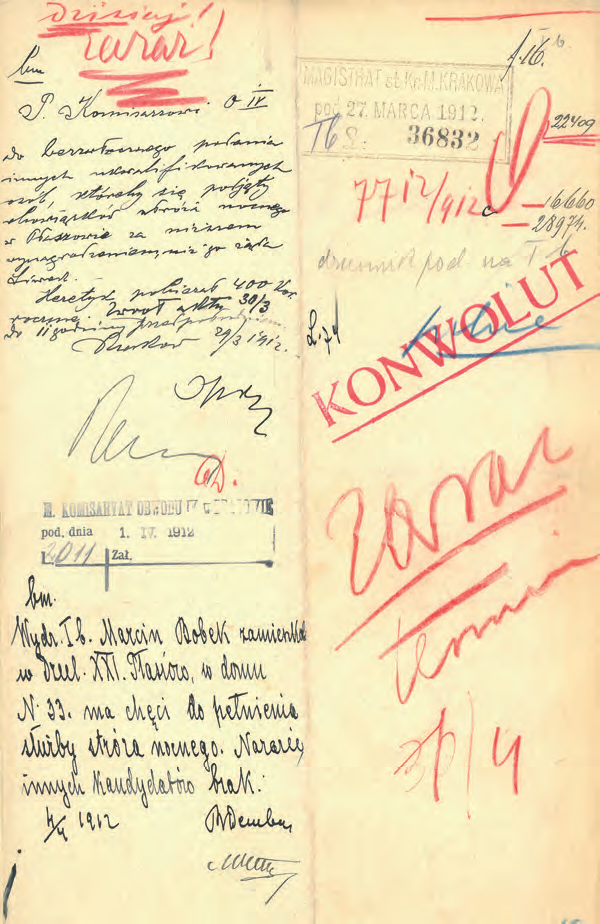 Dzisiaj!
Zaraz!
bm
P. Komisarzowi O IV
do bezzwłocznego podania
innych ukwalifikowanych
osób, któreby się podjęły
obowiązków stróża nocnego
w Płaszowie za
wynagrodzeniem niż go żąda
400 Kor.
rocznie. Zwrot aktu 30/3
do 11 godziny przedpołudniem
Kraków 29/3 1912.
M. KOMISARYAT OBWODU IV
pod. dnia 1. IV. 1912
L. 2011 Zał.
bm.
Wydz. I b. Marcin Bobek zamieszkały
w Dziel. XXI. Płaszów, w domu
N. 33. ma chęci do pełnienia
służby stróża nocnego. Narazie
innych kandydatów brak.
4/4 1912
1.16. b
MAGISTRAT st. kr. M. KRAKOWA
pod. 27. MARCA 1912.
Ib L: 36832
22409
77 12/912
16660
28974.
dziennik pod. na I b
L. 74
KONWOLUT
Zaraz
termin
30/4